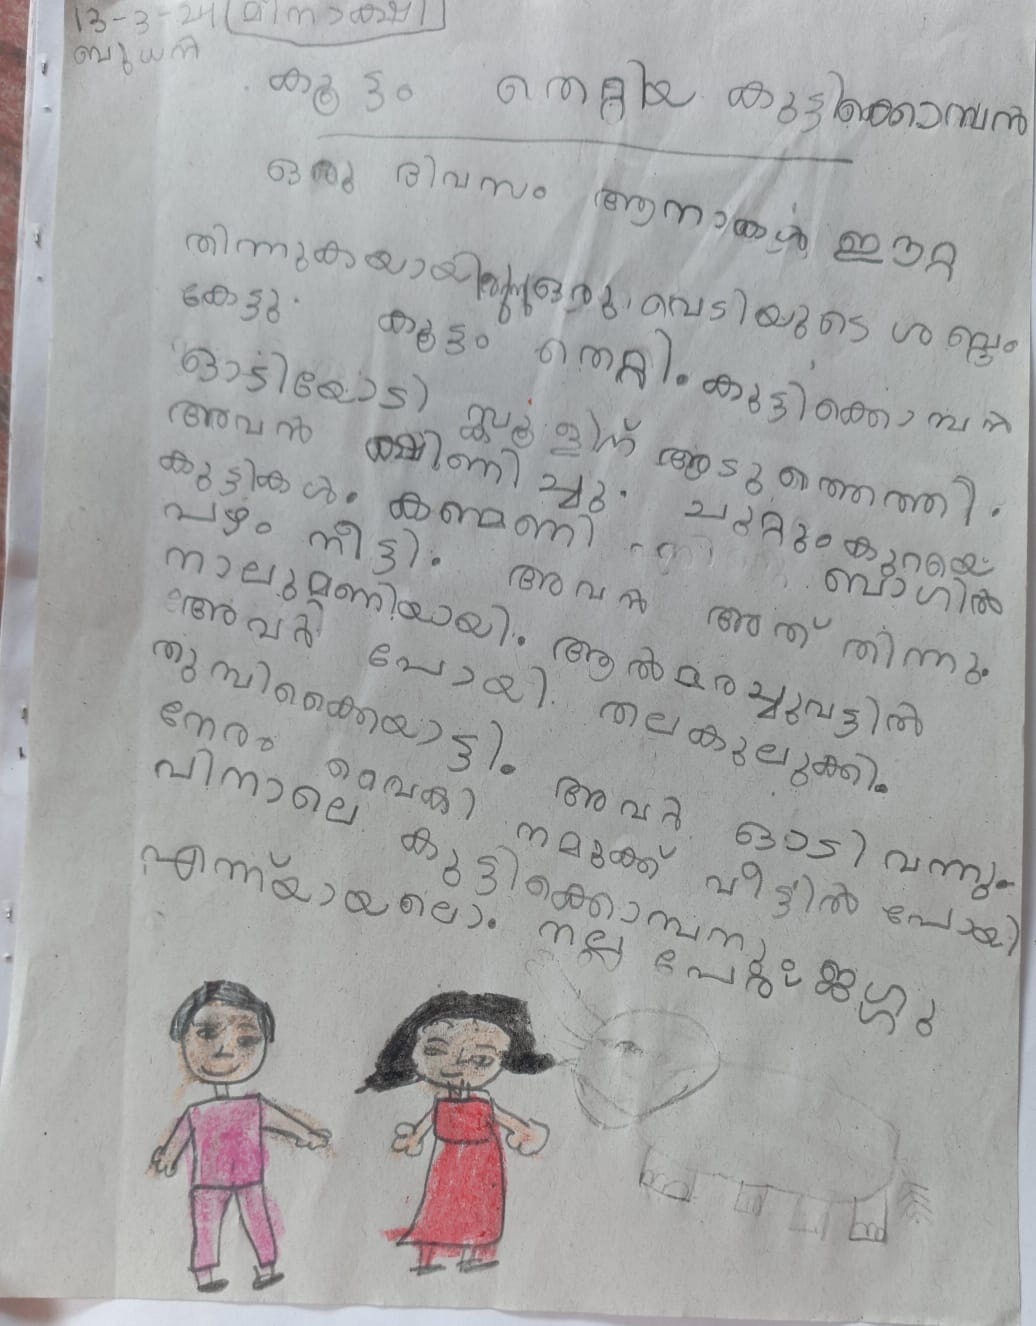 13-3-24 മീനാക്ഷി
ബുധൻ
കൂട്ടം തെറ്റിയ കുട്ടിക്കൊമ്പൻ
ഒരു ദിവസം ആനാകൾ ഈറ്റ
തിന്നുകയായിരുന്നു ഒരു വെടിയുടെ ശബ്ദം
കേട്ടു. കൂട്ടം തെറ്റി. കുട്ടിക്കൊമ്പൻ
ഓടിയോടി സ്കൂളിന് അടുത്തെത്തി.
അവൻ ക്ഷീണിച്ചു. ചുറ്റും കുറയെ
കുട്ടികൾ. കൺമണി ബാഗിൽ
പഴം നീട്ടി. അവൻ അത് തിന്നു.
നാലുമണിയായി. ആൽമരച്ചുവട്ടിൽ
അവർ പോയി. തലകുലുക്കി.
തുമ്പിക്കൈയാട്ടി. അവർ ഓടി വന്നു.
നേരം വൈകി നമുക്ക് വീട്ടിൽ പോയി
പിനാലെ കുട്ടിക്കൊമ്പനു
എന്ന്യായലൊ. നല്ല പേരു ജഗ്ഗു